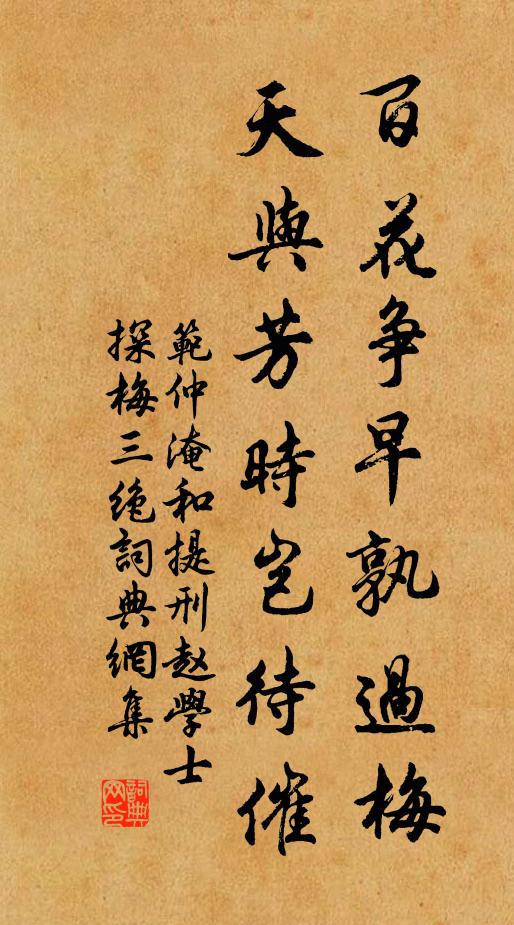 百花争早孰過梅
天與芳時豈待催
範仲淹和提刑赵學士
探梅三绝詞典網集
詞典
网印